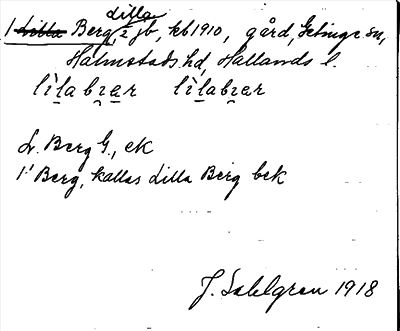 Lilla
1 Lilla Berg, 2 jb, kb 1910, gård, Getinge sn,
Halmstads hd, Hallands l.
Lilla Berg G., ek
1' Berg, kallas Lilla Berg bek
J. Sahlgren 1918